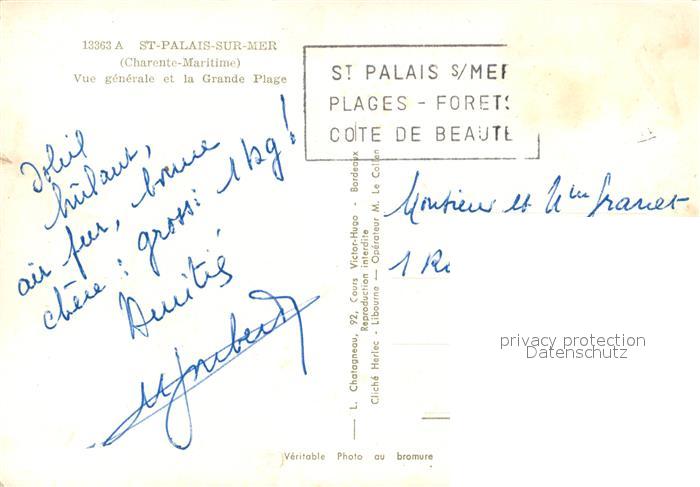 13363 A ST-PALAIS-SUR-MER
(Charente-Maritime)
Vue générale et la Grande Plage
ST PALAIS S/MER
PLAGES - FORETS
COTE DE BEAUTE
Soleil
brûlant,
air pur, bonne
chère : grossi 1 kg !
Amitiés
Monsieur et Mme Granet
1 Ru
L. Chatagneau, 92, Cours Victor-Hugo - Bordeaux
Reproduction interdite
Cliché Herlec - Libourne — Opérateur M. Le Collen
privacy protection
Datenschutz
Véritable Photo au bromure